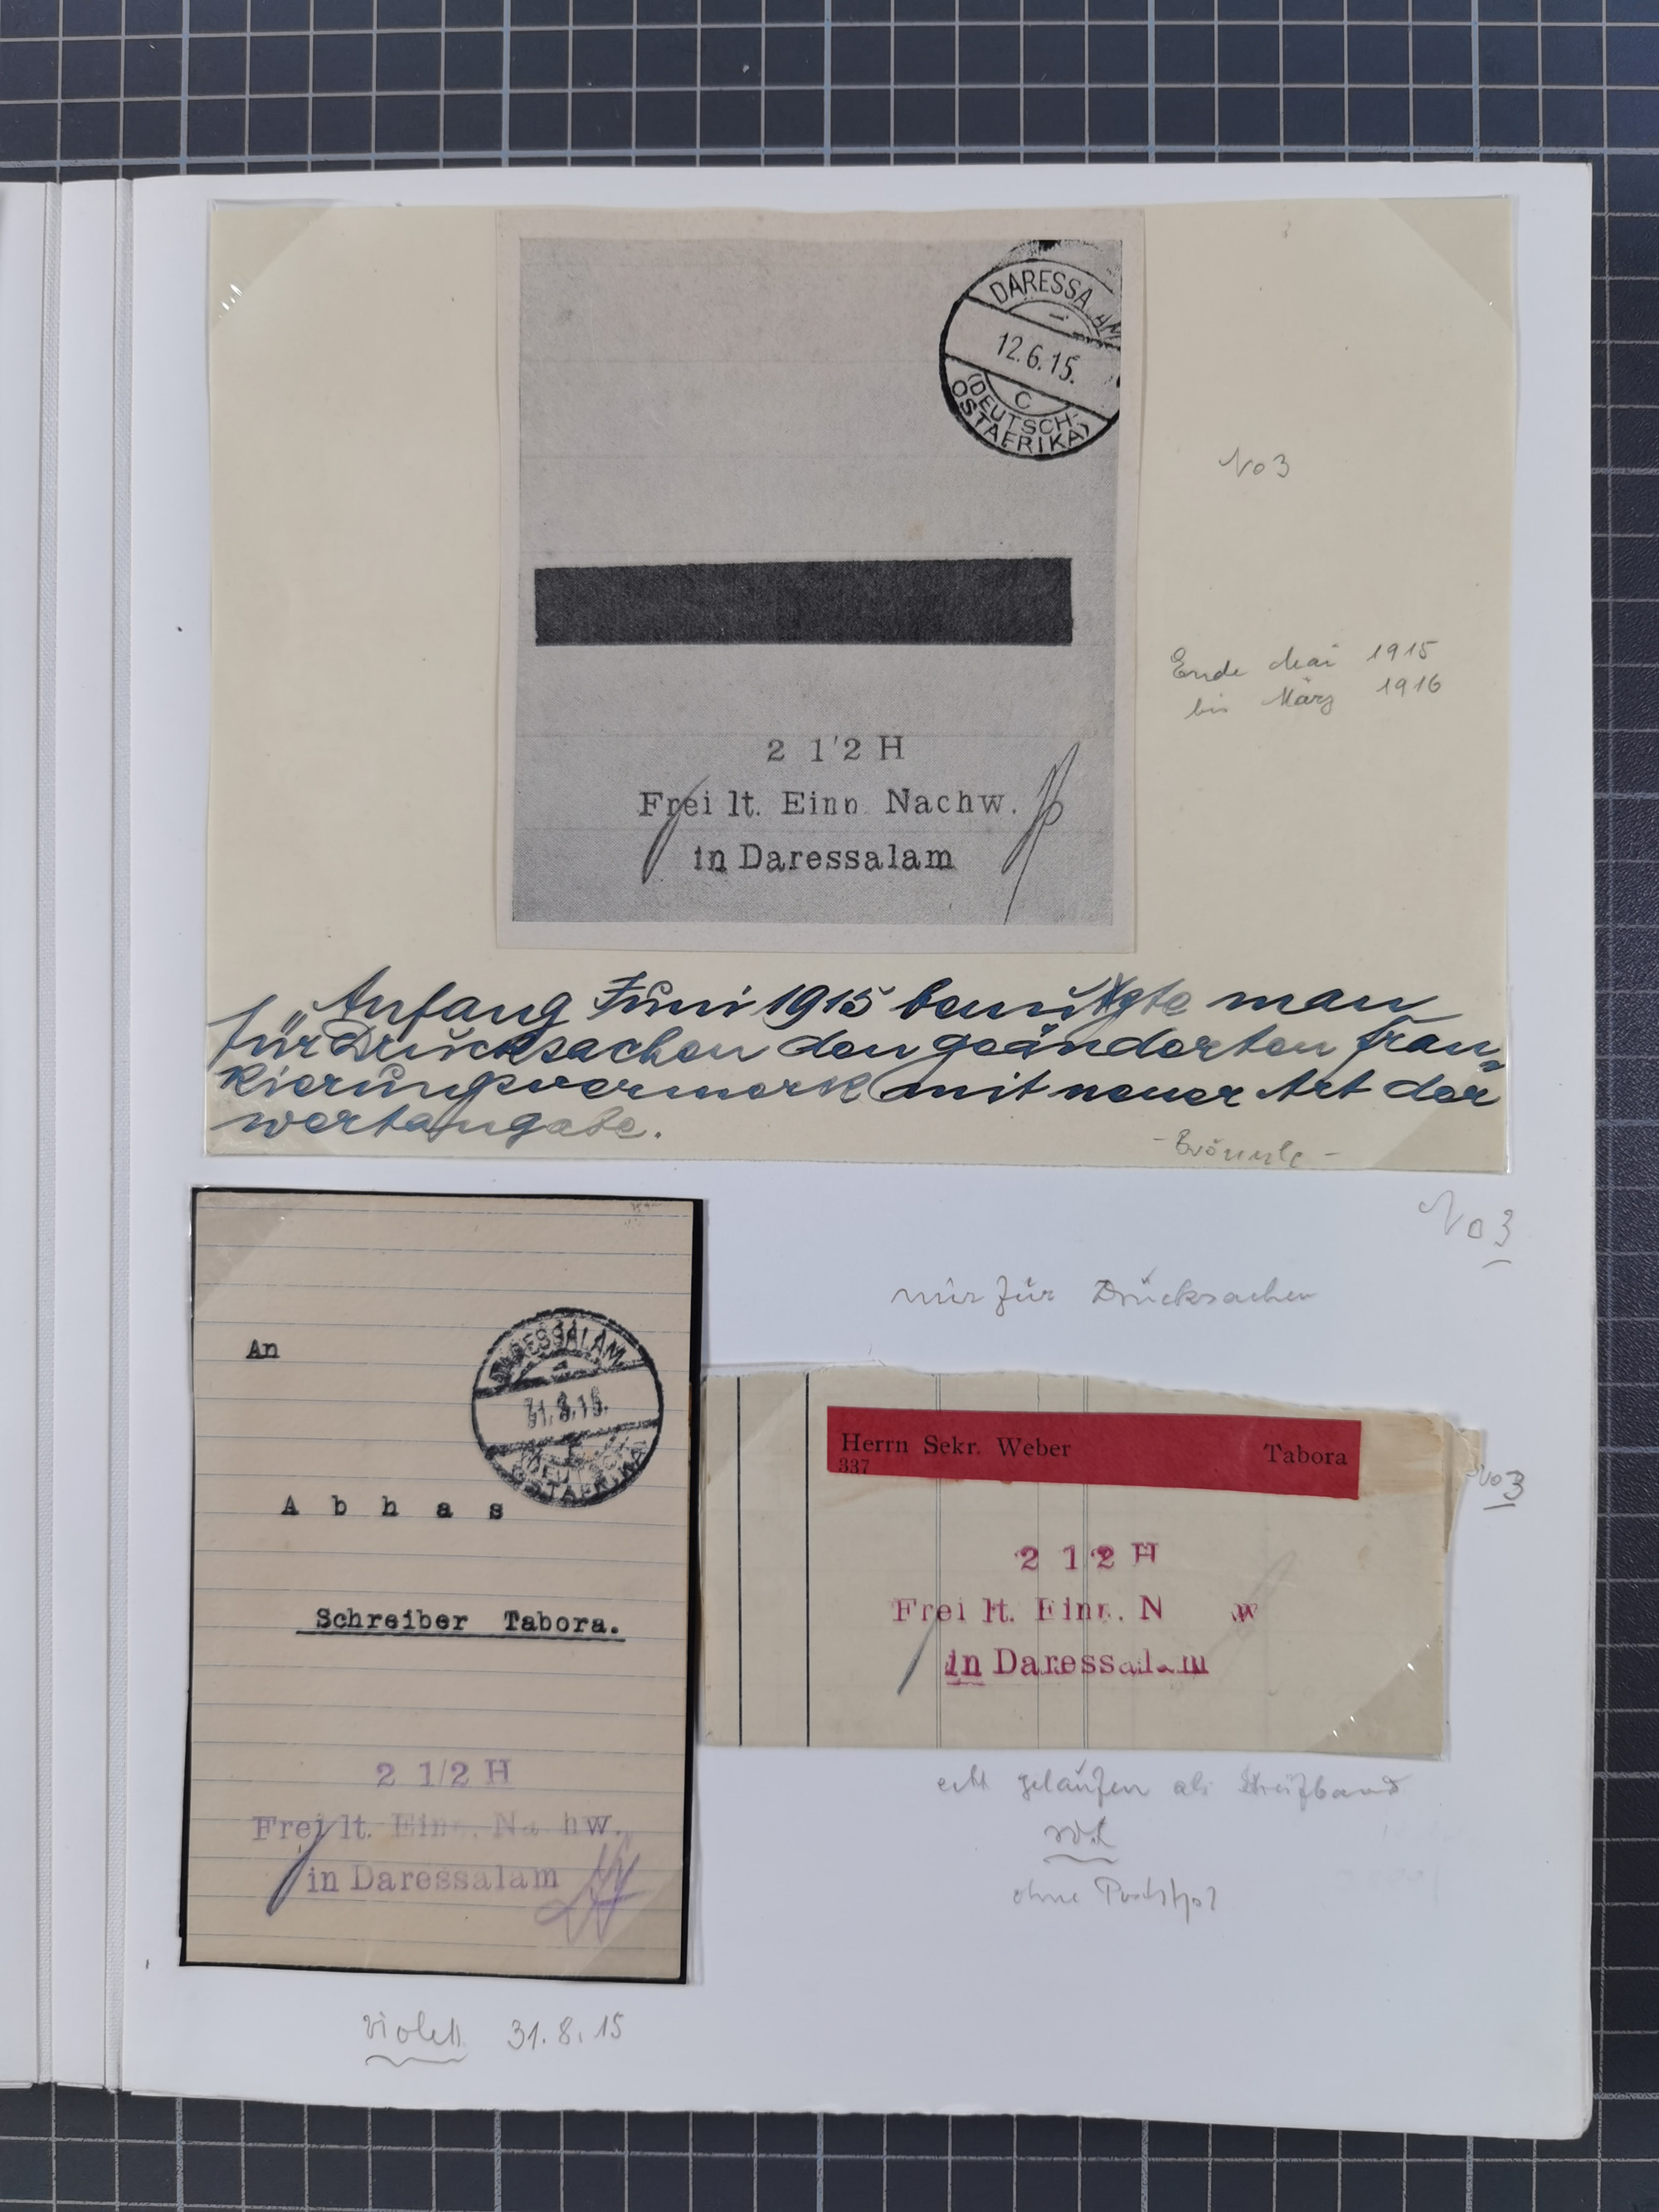 DARESSA AM
12.6.15.
C
(DEUTSCH-
OSTAFRIKA)
No 3
Ende Mai 1915
bis März 1916
2 1'2 H
Frei lt. Einn Nachw.
in Daressalam
„Anfang Juni 1915 benutzte man
für Drucksachen den geänderten fran-
kierungsvermerk mit neuer Art der
wertangabe.
- Brönnle -
No 3
nur für Drucksachen
An
DARESSALAM
31.8.15.
(DEUTSCH-
OSTAFRIKA)
Abhas
Schreiber Tabora.
2 1/2 H
Frei lt. Einn. Na hw.
in Daressalam
Herrn Sekr. Weber Tabora
337
No 3
2 1 2 H
Frei lt. Einn. N w
in Daressalam
echt gelaufen als Streifband
rot
ohne
violett 31.8.15